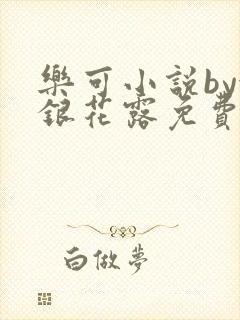 樂可小說by
銀花露免費
白做夢